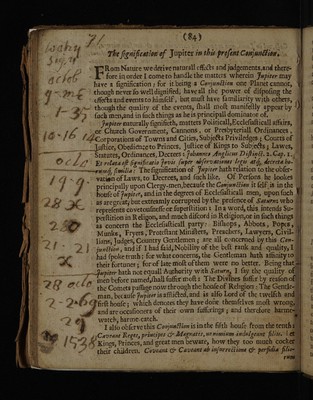 (84)
The signification of Jupiter in this present Conjunction.
FRom Nature we derive naturall effects and judgements, and there-
fore in order I come to handle the matters wherein Jupiter may
have a signification: for it being a Conjunction one Planet cannot,
though never so well dignified, have all the power of disposing the
affects and events to himself, but must have familiarity with others,
though the quality of the event, shall most manifestly appear by
such men, and in such things as he is principall dominator of.
Jupiter naturally signifieth, matters Politicall, Ecclesiasticall affairs,
or Church Government, Cannons, or Presbyteriall Ordinances,
Corporations of Towns and Cities, Subjects Priviledges; Courts of
Justice, Obedience to Princes, Justice of Kings to Subjects; Lawes,
Statutes, Ordinances, Decrees:
The signification of Jupiter hath relation to the obser-
vation of Laws, to Decrees, and such like. Of Persons he lookes
principally upon Clergy-men, because the Conjunction it self is in the
house of Jupiter, and in the degrees of Ecclesiasticall men, upon such
as are great, but extreamly corrupted by the presence of Saturn who
represents covetousnesse or superstition: In a word, this intends Su-
perstition in Religion, and much discord in Religion, or in such things
as concern the Ecclesiasticall party: Bishops, Abbots, Popes,
Munks, Fryers, Protestant Ministers, Preachers, Lawyers, Civil-
lians, Judges, Country Gentlemen; are all concerned by this Con-
junction, and if I had said, Nobility of the best rank and quality, I
had spoke truth: for what concerns, the Gentleman hath affinity to
their fortunes; for of late most of them were no better. Being that
Jupiter hath not equall Authority with Saturn, I say the quality of
men before named, shall suffer most: The Divines suffer by reason of
the Comets passage now through the house of Religion: The Gentle-
man, because Jupiter is afflicted, and is also Lord of the twelfth and
first house; which denotes they have done themselves most wrong,
and are occasioners of their own sufferings; and therefore harme-
watch, harme-catch.
I also observe this Conjunction is in the fifth house from the tenth:
Kings, Princes, and great men beware, how they too much cocker
their children.
19 · 9 ·
28
21 · 21
29
1538